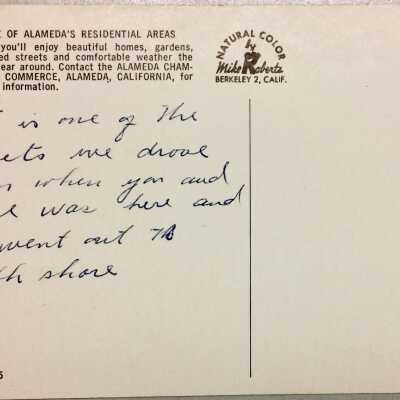 E OF ALAMEDA'S RESIDENTIAL AREAS
you'll enjoy beautiful homes, gardens,
ed streets and comfortable weather the
ear around. Contact the ALAMEDA CHAM-
COMMERCE, ALAMEDA, CALIFORNIA, for
information.
NATURAL COLOR
by
Mike Roberts
BERKELEY 2, CALIF.
is one of the
ets we drove
when you and
was here and
went out
th shore
5